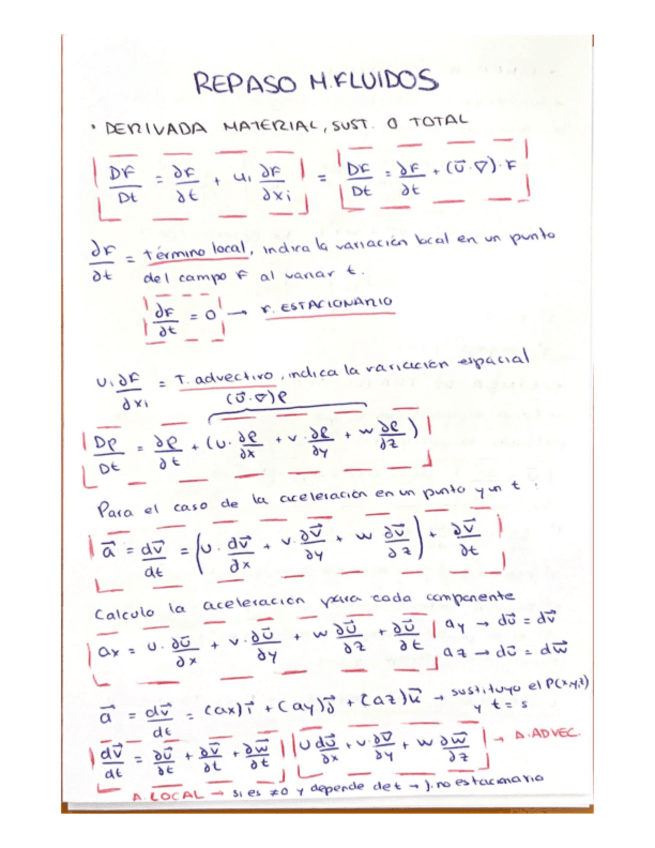 REPASO M.FLUIDOS
• DERIVADA MATERIAL, SUST. O TOTAL
DF/Dt = ∂F/∂t + ui ∂F/∂xi = DF/Dt = ∂F/∂t + (ū·∇)·F
∂F/∂t = término local, indica la variación local en un punto
del campo F al variar t.
∂F/∂t = 0 → F. ESTACIONARIO
ui ∂F/∂xi = T. advectivo, indica la variación espacial
(ū·∇)ρ
Dρ/Dt = ∂ρ/∂t + (u·∂ρ/∂x + v·∂ρ/∂y + w ∂ρ/∂z)
Para el caso de la aceleración en un punto y un t :
a⃗ = dv⃗/dt = (u·dv⃗/∂x + v·∂v⃗/∂y + w ∂v⃗/∂z) + ∂v⃗/∂t
Calculo la aceleración para cada componente
ax = u·∂ū/∂x + v·∂ū/∂y + w ∂ū/∂z + ∂ū/∂t | ay → dū = dv⃗
az → dū = dw⃗
a⃗ = dv⃗/dt = (ax)i⃗ + (ay)j⃗ + (az)k⃗ → sustituyo el P(x,y,z)
y t = s
dv⃗/dt = ∂ū/∂t + ∂v⃗/∂t + ∂w⃗/∂t | u dū/∂x + v·∂v⃗/∂y + w ∂w⃗/∂z → A. ADVEC.
A. LOCAL → si es ≠0 y depende de t → f. no estacionario